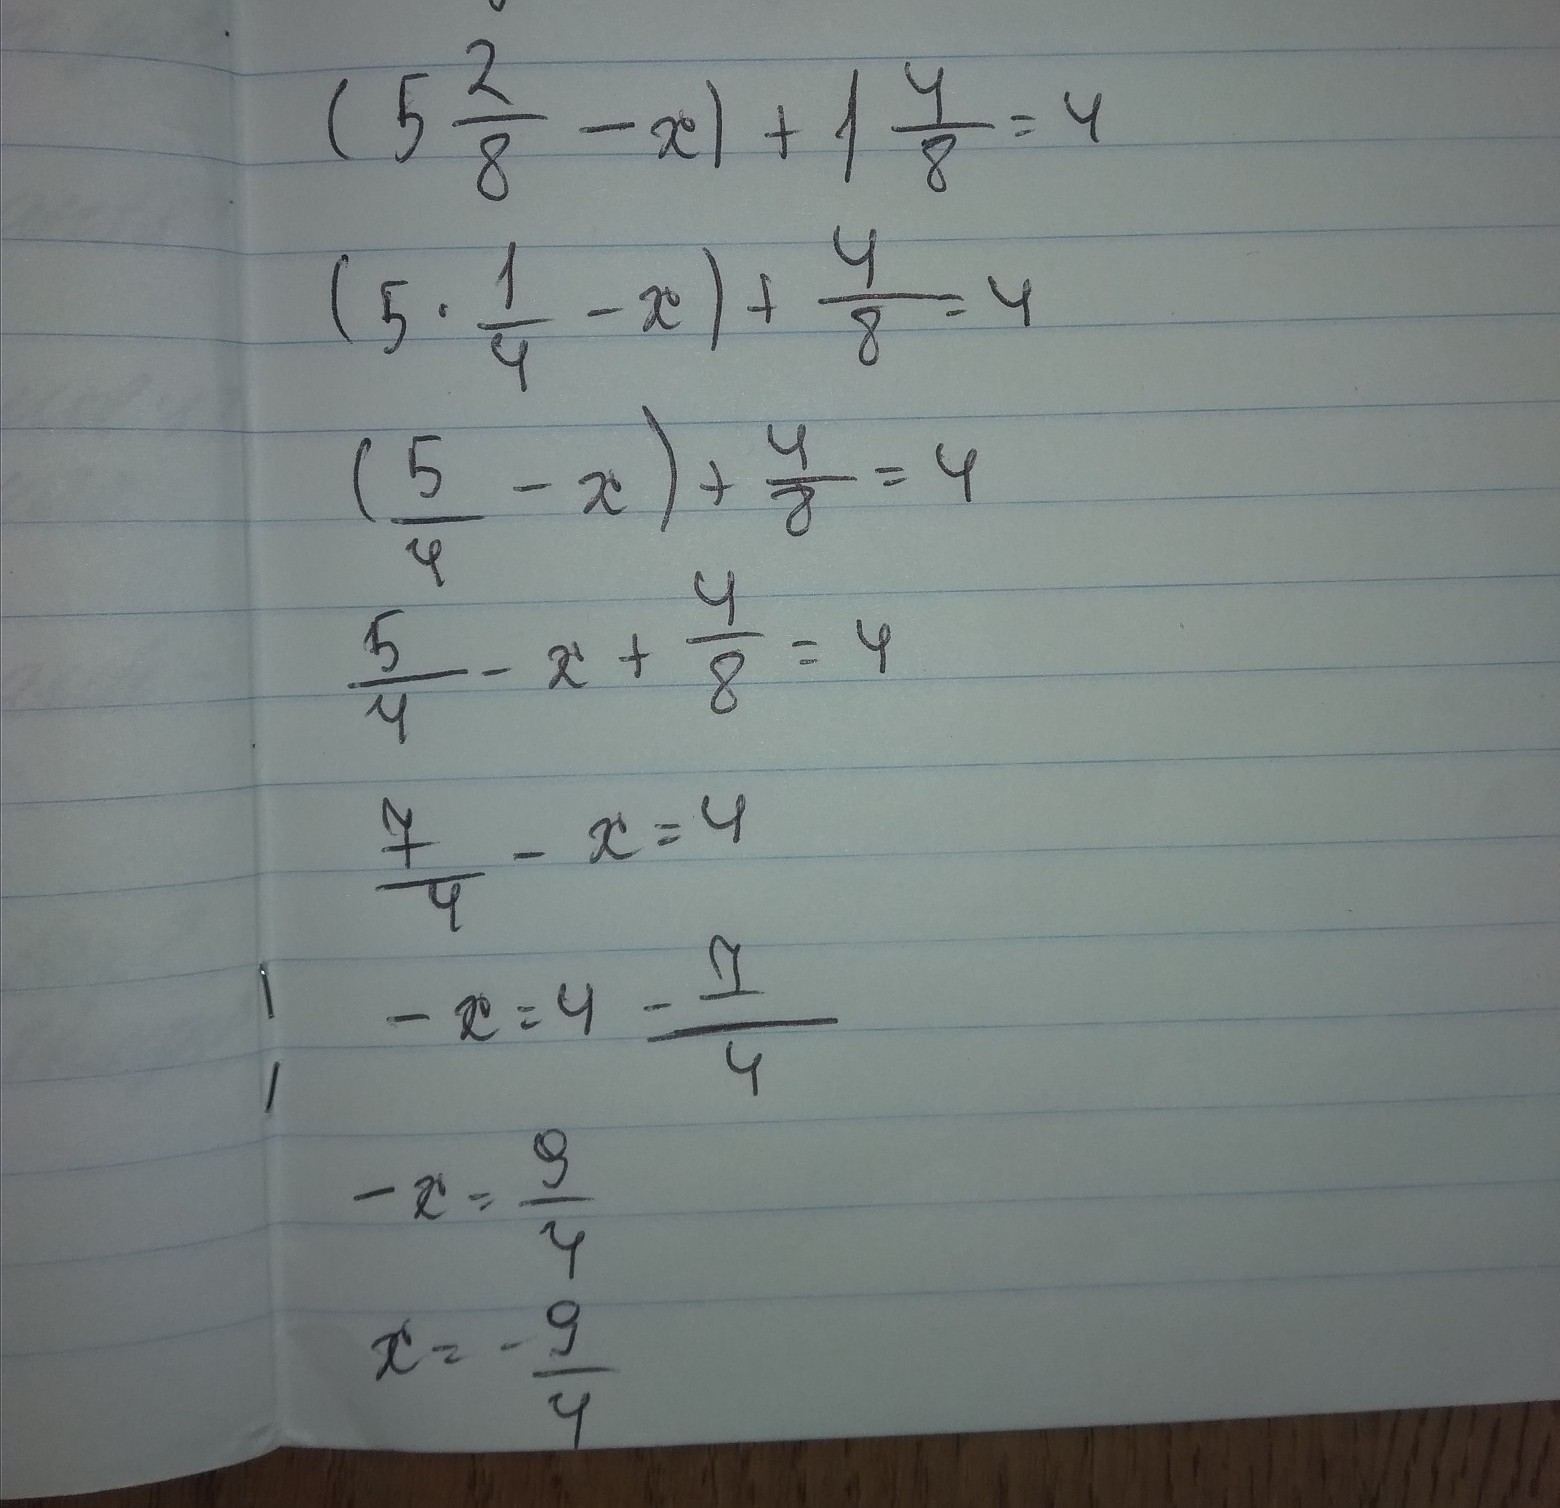 (5 2/8 - x) + 1 4/8 = 4
(5 · 1/4 - x) + 4/8 = 4
(5/4 - x) + 4/8 = 4
5/4 - x + 4/8 = 4
7/4 - x = 4
- x = 4 - 7/4
- x = 9/4
x = - 9/4